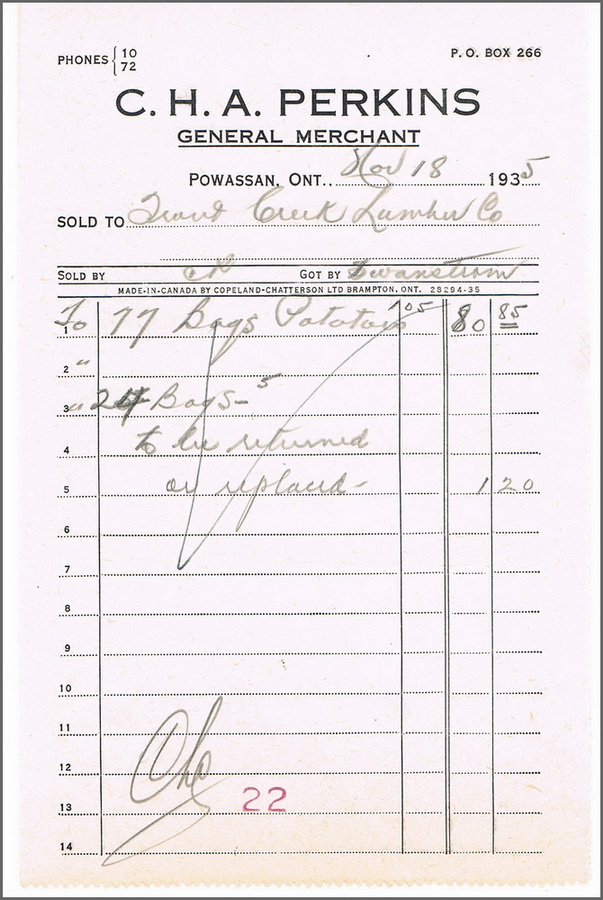 PHONES { 10
72
P. O. BOX 266
C. H. A. PERKINS
GENERAL MERCHANT
POWASSAN, ONT. Nov 18 1935
SOLD TO Creek Lumber Co
SOLD BY GOT BY Swanstrom
MADE-IN-CANADA BY COPELAND-CHATTERSON LTD BRAMPTON. ONT. 28294-35
To 77 Bags Potatoes 1 05 80 85
1
2 "
3 " 24 Bags - 5
4 to be returned
5 or replaced - 1 20
6
7
8
9
10
11
12
13 22
14